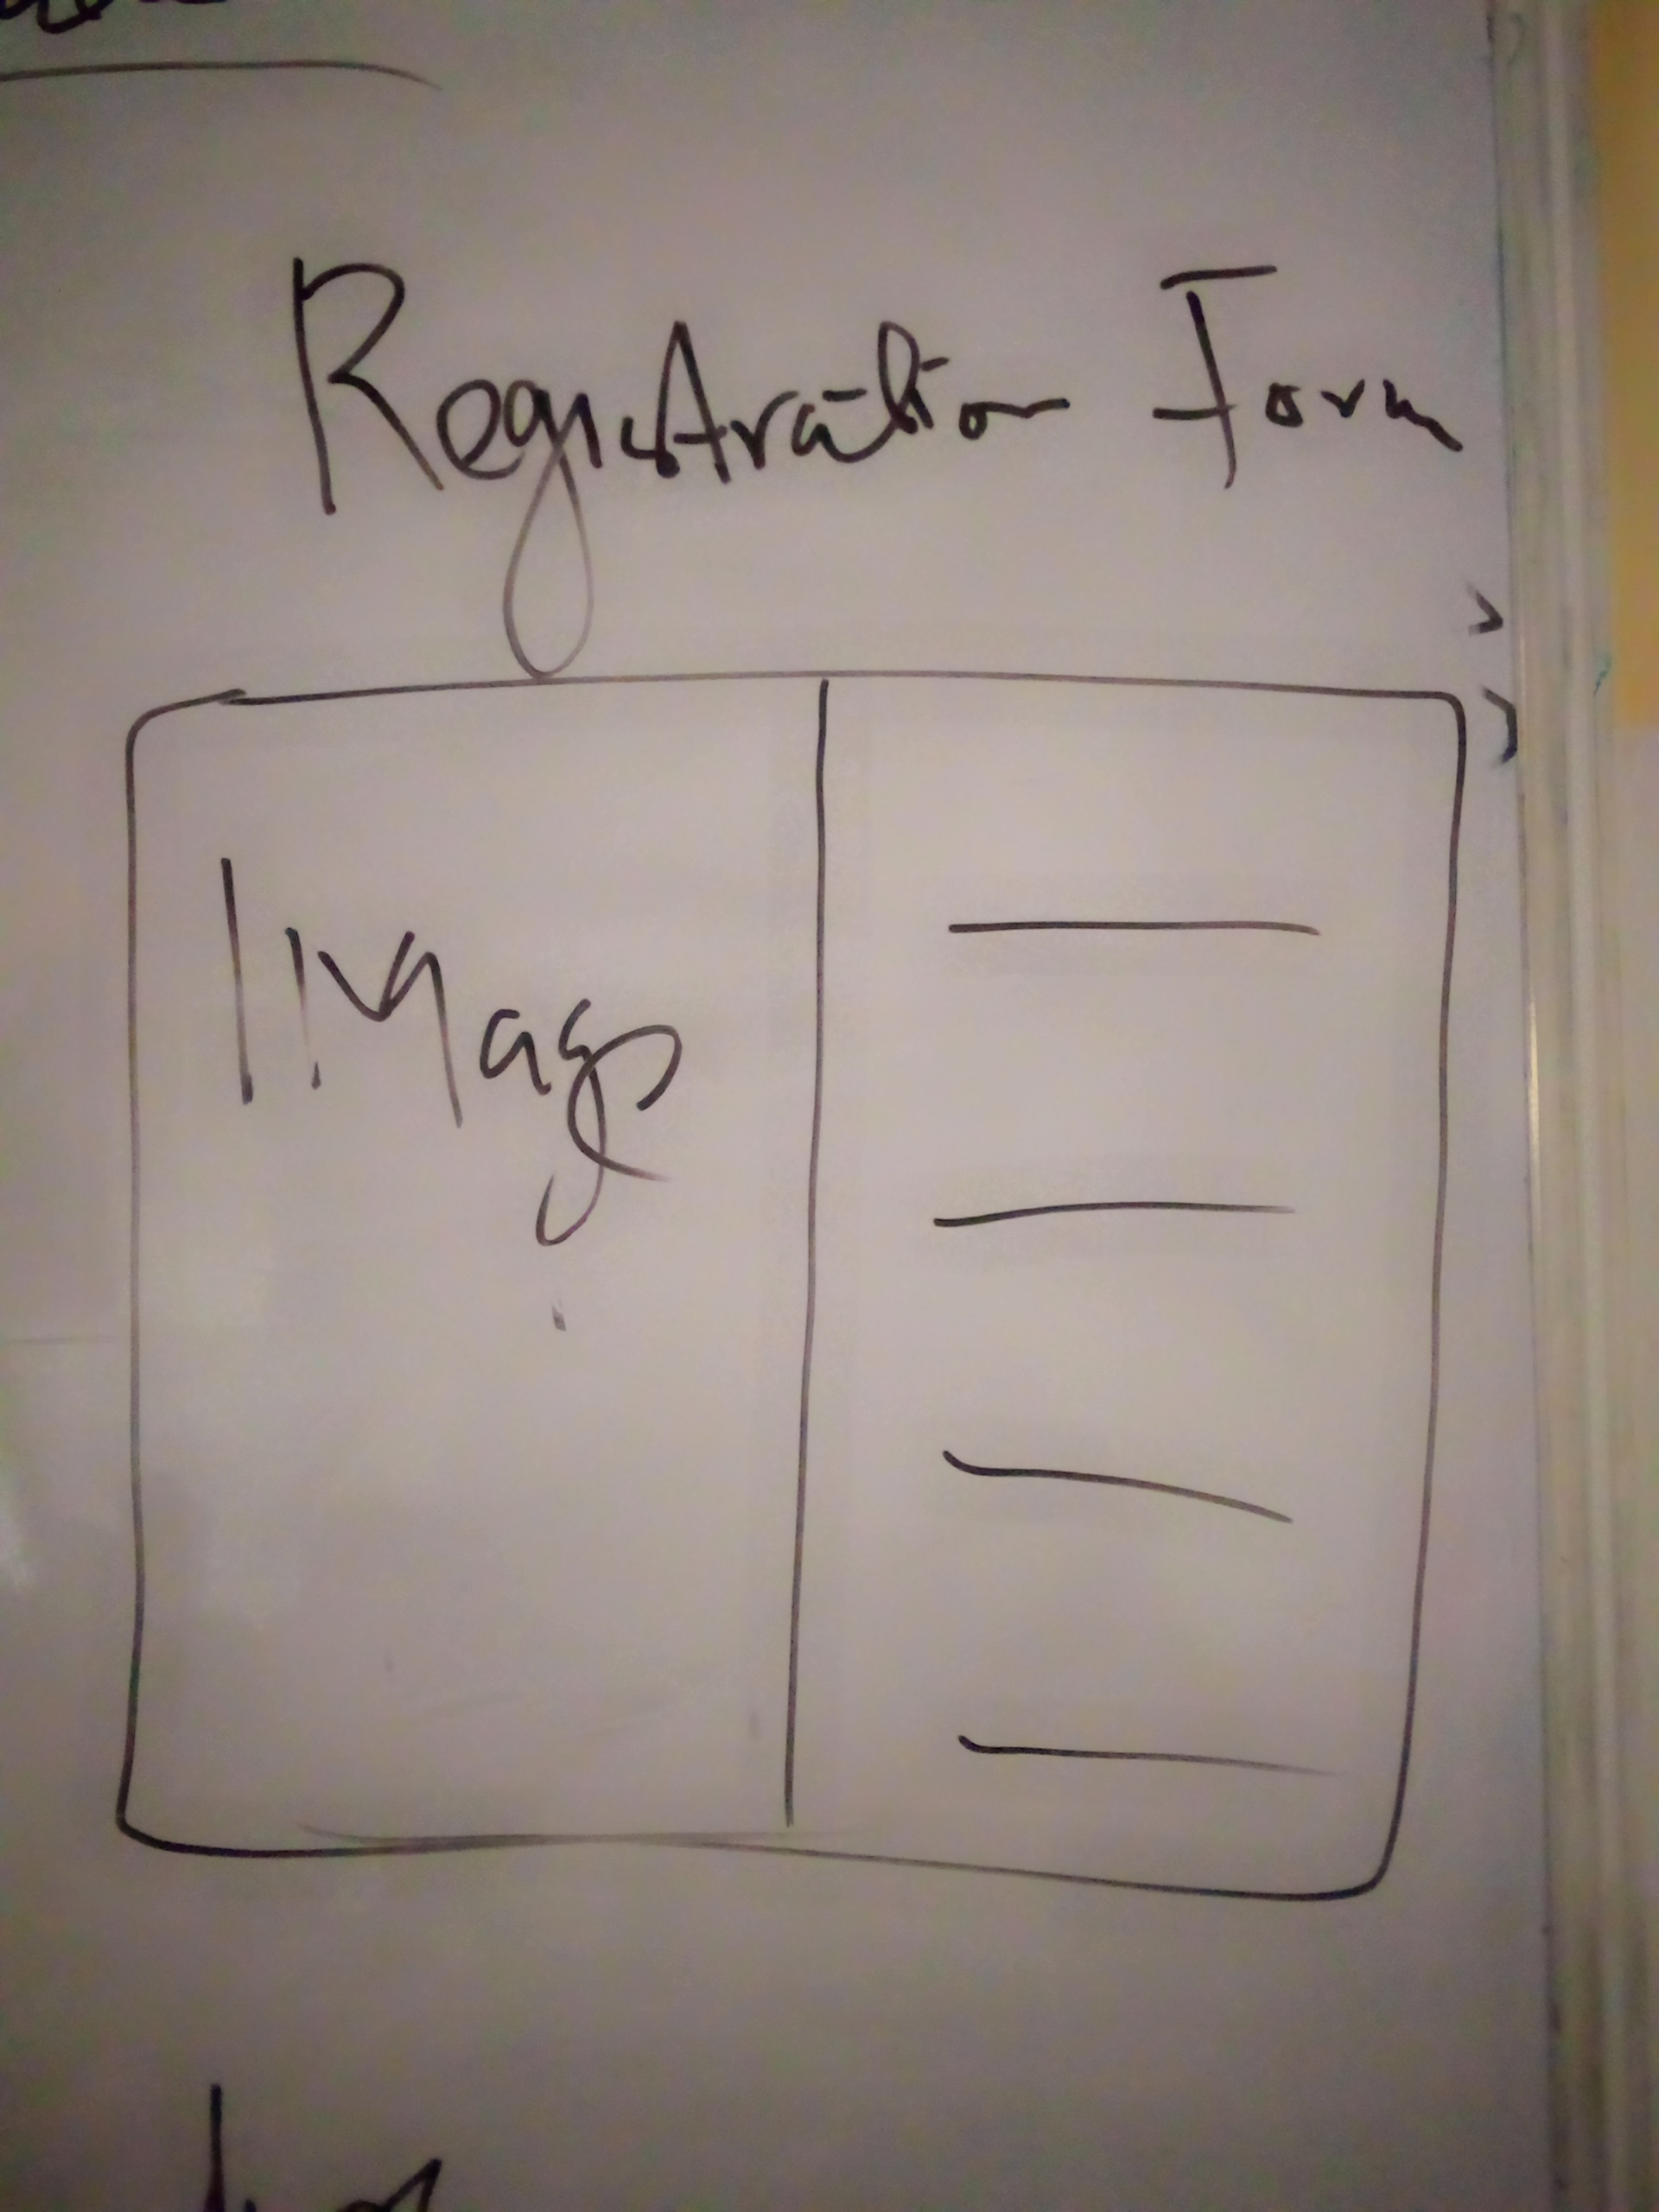 Registration Form
IMage